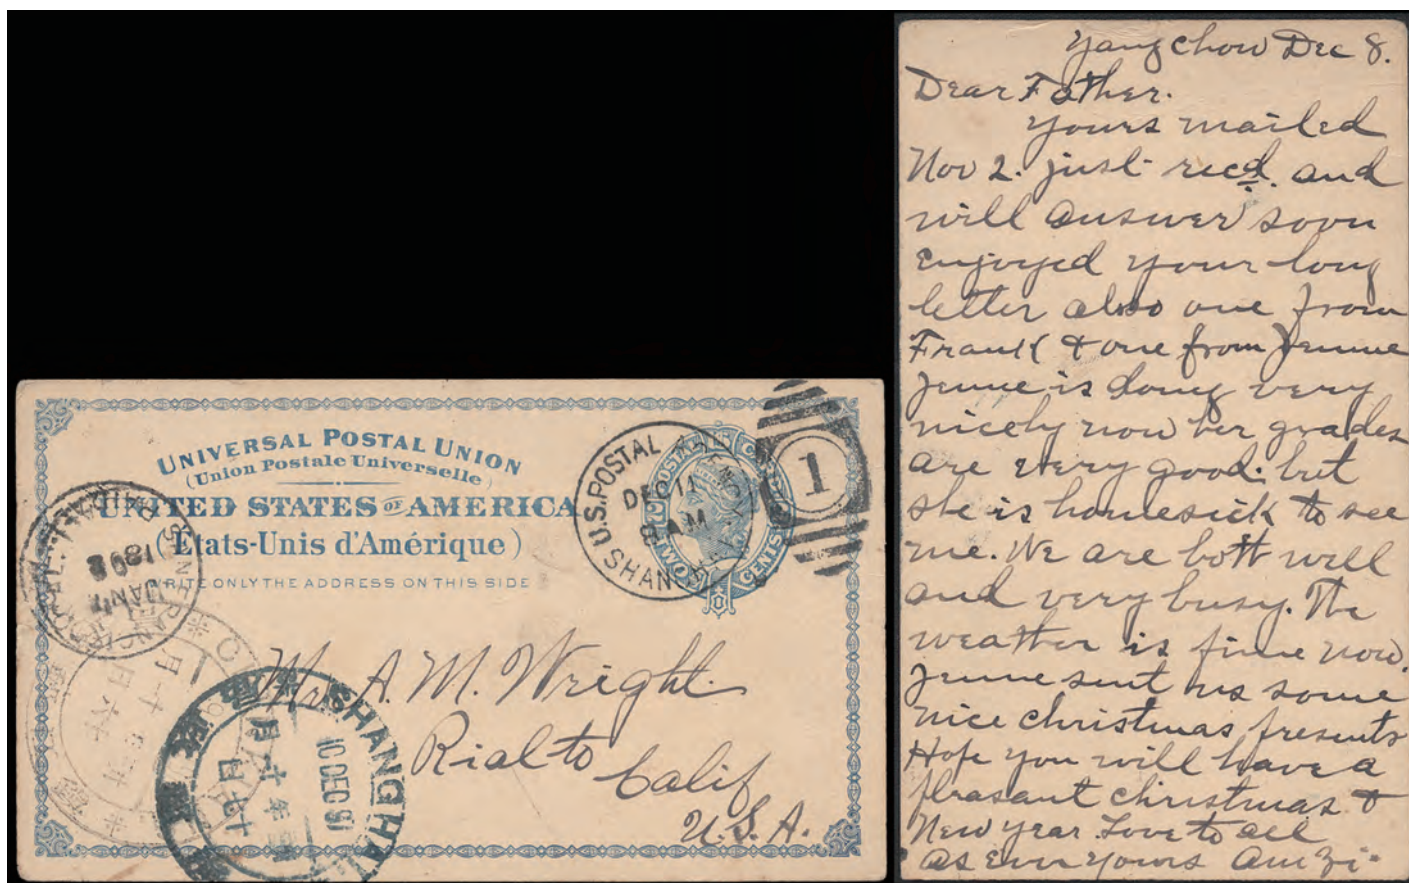 UNIVERSAL POSTAL UNION
(Union Postale Universelle)
UNITED STATES OF AMERICA
(États-Unis d'Amérique)
WRITE ONLY THE ADDRESS ON THIS SIDE
POSTAL CARD
TWO CENTS
U.S. POSTAL AGENCY
DEC 11
8 AM
SHANGHAI
1
SAN FRANCISCO
PAID ALL
JAN
1898
SHANGHAI
10 DEC 97
Mr. A. M. Wright.
Rialto
Calif
U.S.A.
Yangchow Dec 8.
Dear Father.
Yours mailed
Nov 2. just recd. and
will answer soon
enjoyed your long
letter also one from
Frank & one from Jennie
Jennie is doing very
nicely now her grades
are very good. but
she is homesick to see
me. We are both well
and very busy. The
weather is fine now.
Jennie sent us some
nice christmas presents
Hope you will have a
pleasant christmas &
New year Love to all
as ever yours Amzi-